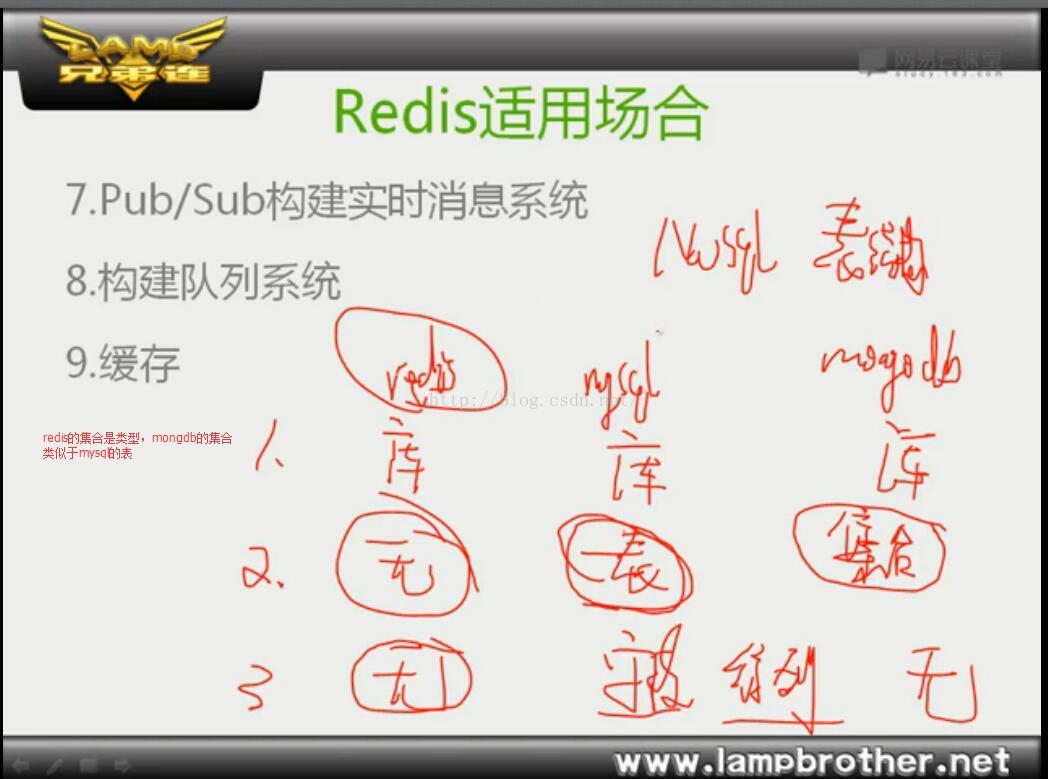 LAMP
兄弟连
网易云课堂
study.163.com
Redis适用场合
7.Pub/Sub构建实时消息系统
8.构建队列系统
9.缓存
NoSql 表结构
redis mysql mongodb
http://blog.csdn.net
redis的集合是类型，mongdb的集合
类似于mysql的表
1. 库 库 库
2. 无 表 集合
3 无 字段 无
www.lampbrother.net